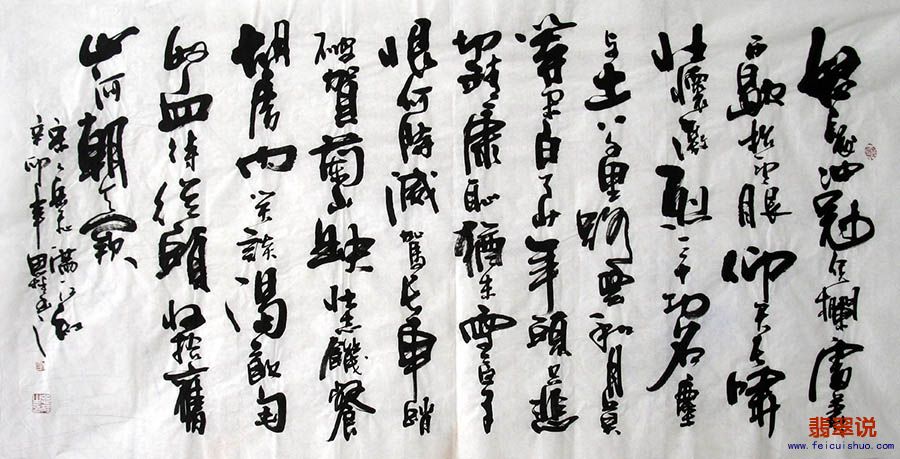 怒髮冲冠凭欄處瀟
雨歇抬望眼仰天長嘯
壯懷激烈三十功名塵
与土八千里路雲和月莫
等閑白了少年頭空悲
切靖康恥猶未雪臣子
恨何時滅駕長車踏
破賀蘭山缺壯志饑餐
胡虜肉笑談渴飲匈
奴血待從頭收拾舊
山河朝天闕
岳飛滿江紅
辛卯年
翡翠说
www.feicuishuo.com